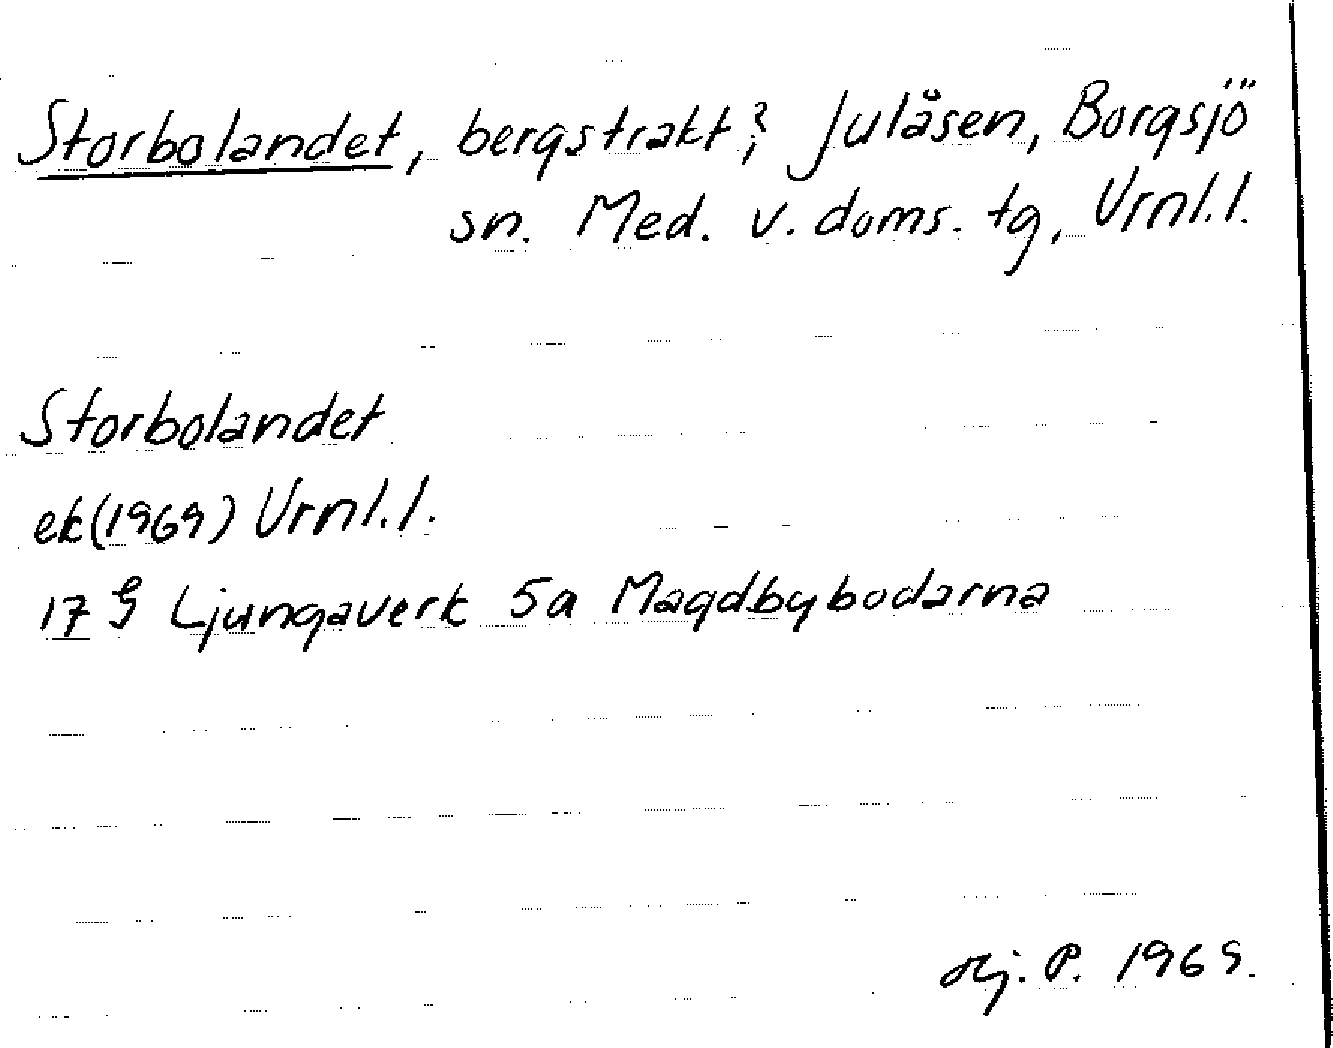 Storbolandet, bergstrakt?, Julåsen, Borgsjö
sn. Med. v. doms. tg, Vrnl.l.
Storbolandet
ek(1969) Vrnl.l.
17 G Ljungaverk 5a Magdbybodarna
Hj. P. 1969.